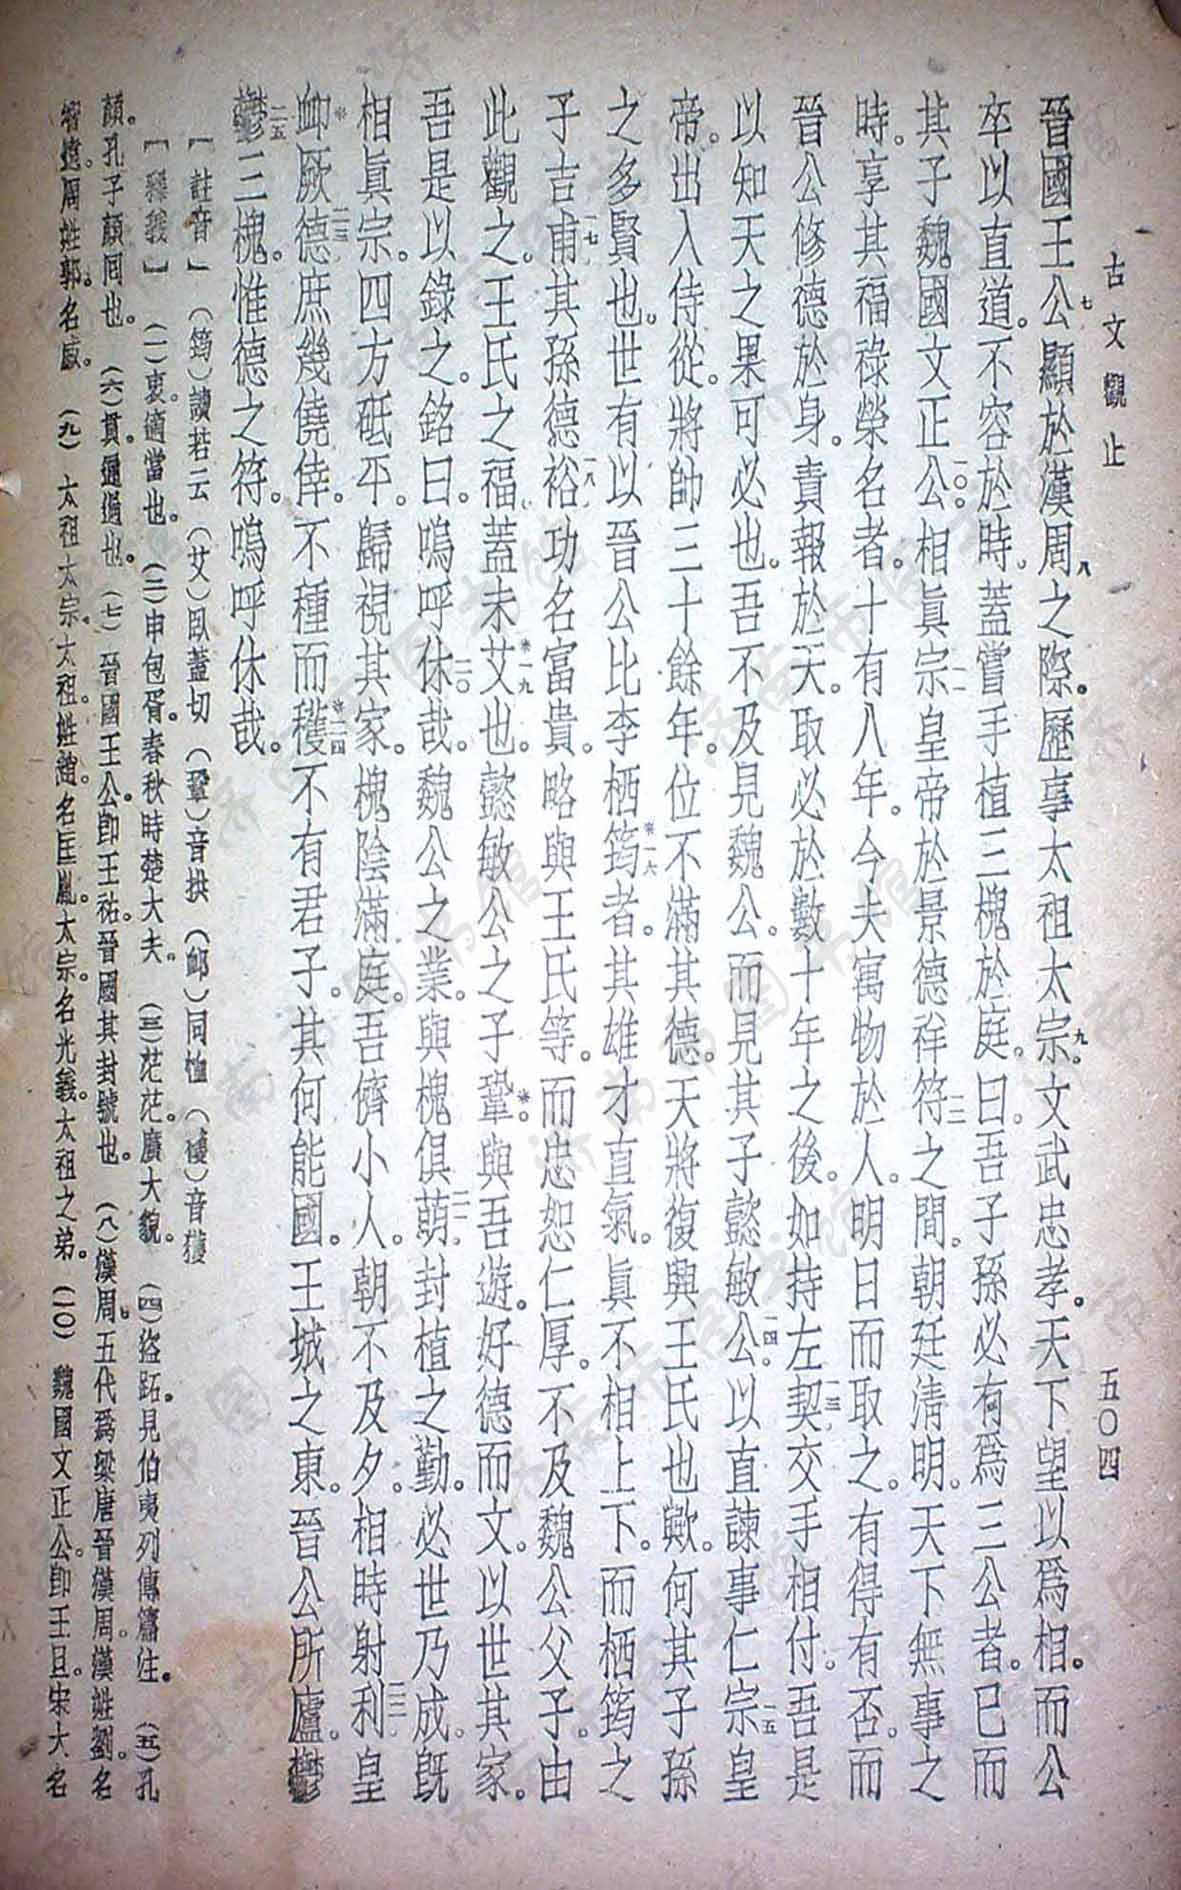 古文觀止
五〇四
晉國王公七顯於漢周八之際。歷事太祖太宗九。文武忠孝。天下望以爲相。而公
卒以直道。不容於時。蓋嘗手植三槐於庭。曰。吾子孫必有爲三公者。已而
其子魏國文正公一〇。相眞宗一一皇帝於景德祥符一二之間。朝廷清明。天下無事之
時。享其福祿榮名者。十有八年。今夫寓物於人。明日而取之。有得有否。而
晉公修德於身。責報於天。取必於數十年之後。如持左契一三。交手相付。吾是
以知天之果可必也。吾不及見魏公。而見其子懿敏公一四。以直諫事仁宗一五皇
帝。出入侍從。將帥三十餘年。位不滿其德。天將復興王氏也歟。何其子孫
之多賢也。世有以晉公比李栖筠※一六者。其雄才直氣。眞不相上下。而栖筠之
子吉甫一七。其孫德裕一八。功名富貴。略與王氏等。而忠恕仁厚。不及魏公父子。由
此觀之。王氏之福。蓋未艾※一九也。懿敏公之子鞏※。與吾遊。好德而文。以世其家。
吾是以錄之。銘曰。嗚呼休二〇哉。魏公之業。與槐俱萌二一。封植之勤。必世乃成。旣
相眞宗。四方砥平。歸視其家。槐陰滿庭。吾儕小人。朝不及夕。相時射利二二。皇
卹※厥德二三。庶幾僥倖。不種而穫※二四。不有君子。其何能國。王城之東。晉公所廬。鬱
鬱二五三槐。惟德之符。嗚呼休哉。
[註音] (筠)讀若云 (艾)臥蓋切 (鞏)音拱 (卹)同恤 (穫)音獲
[釋義] (一)衷。適當也。 (二)申包胥。春秋時楚大夫。 (三)茫茫。廣大貌。 (四)盜跖。見伯夷列傳篇注。 (五)孔
顏。孔子顏回也。 (六)貫。通過也。 (七)晉國王公。卽王祐。晉國其封號也。 (八)漢周。五代爲梁唐晉漢周。漢姓劉。名
智遠。周姓郭。名威。 (九)太祖太宗。太祖。姓趙。名匡胤。太宗。名光義。太祖之弟。 (一〇)魏國文正公。卽王旦。宋大名